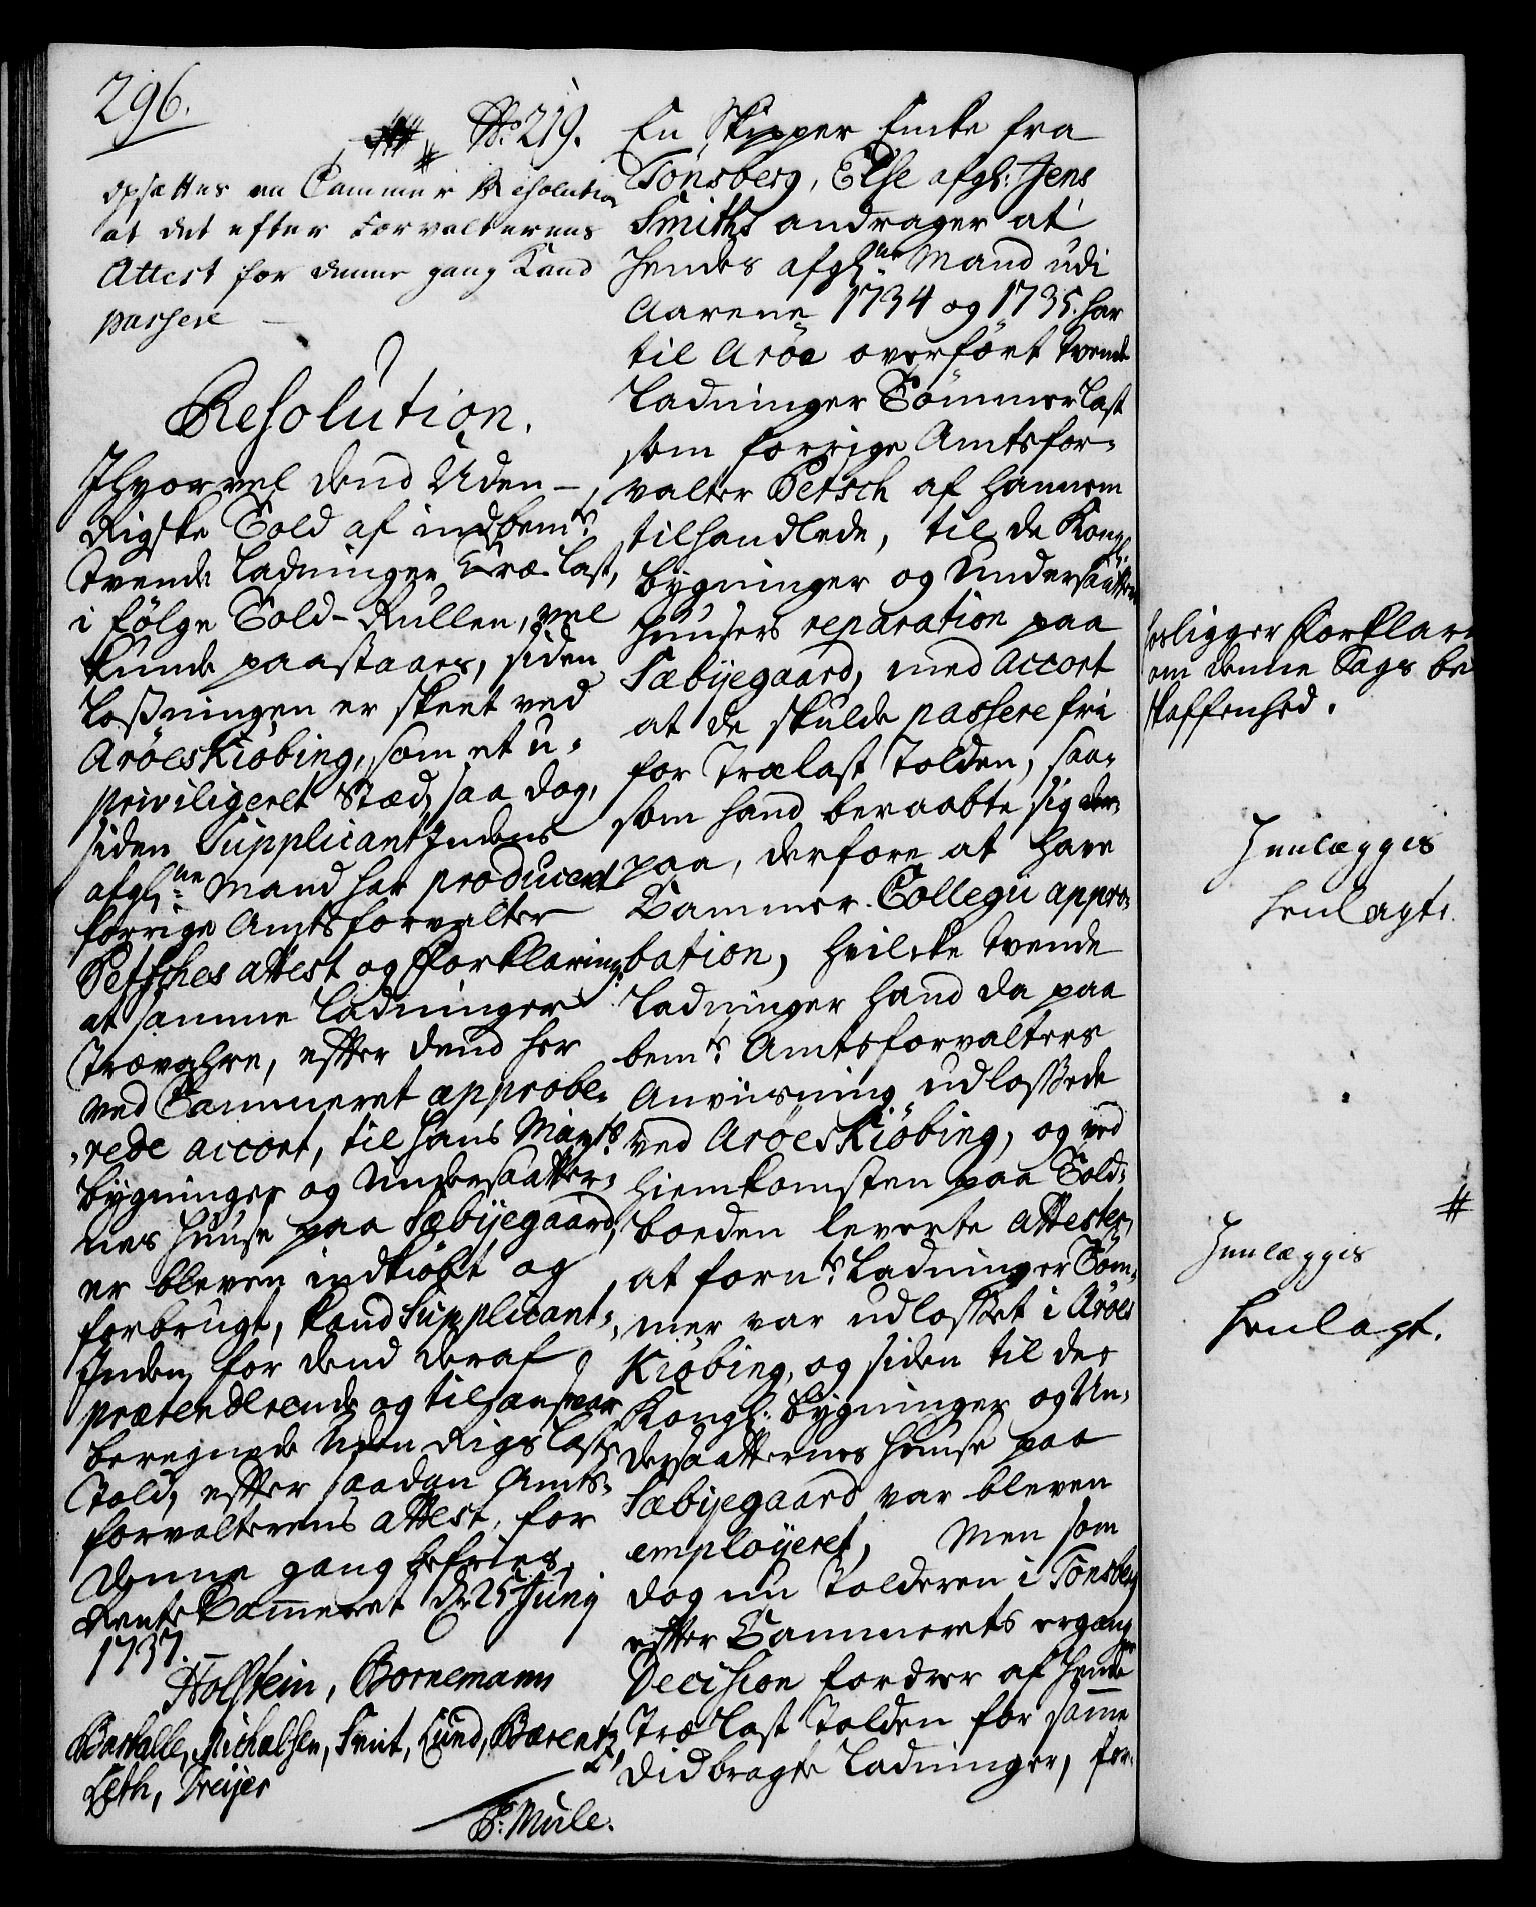 296.
No. 219.
opsættes en Cammer Resolution
at det efter Forvalterens
Attest for denne gang Kand
passere
Resolution.
Ihvorvel dend Uden-
Rigske Told af indbemte
tvende Ladninger Træ-Last,
i følge Told-Rullen, vel
kunde paastaaes, siden
Losningen er skeet ved
Aröeskiöbing, som et u-
priviligeret Stæd, saa dog,
siden Supplicantindens
afgl:ne Mand har produceret
forrige Amtsforvalter
Petsches attest og Forklaring
at samme Ladninger
Trævahre, efter dend her
ved Cammeret approbe-
rede accort, til Hans Mayts
bygninger og Undersaatter-
nes Huuse paa Sæbyegaard,
er bleven indkiöbt og
forbrugt, kand Supplicant-
inden for dend deraf
prætenderende og til hans
beregnede Uden Rigs Last
Told, efter saadan Amts-
forvalterens attest, for
denne gang befries.
RenteKammeret d: 25 Juny
1737.
Holstein, Bornemann
Michelsen, Smit, Lund, Bærentz
Leth, Dreyer
P: Mule.
En Skipper Encke fra
Tönsberg, Else afgl: Jens
Smiths andrager at
hendes afgl:ne Mand udi
Aarene 1734 og 1735. har
til Aröe overfört tvende
Ladninger Tömmerlast
som forrige Amtsfor-
valter Petsch af hannem
tilhandlede, til de Kongl:
bygninger og Undersaatternes
Huusers reparation paa
Sæbyegaard, med Accort
at de skulde passere fri
for Trælast Tolden, saa-
som hand beraabte sig der-
paa, derfore at have
Cammer-Collegii appro-
bation, hvilcke tvende
Ladninger hand da paa
bemte Amtsforvalters
Anviisning udlossede
ved Aröeskiöbing, og ved
Hiemkomsten paa Told-
boeden leverte attester,
at fornte Ladninger Töm-
mer var udlosset i Aröes
Kiöbing, og siden til de
Kongl: bygninger og Un-
dersaatternes Huuse paa
Sæbyegaard var bleven
employeret, Men som
dog nu Tolderen i Tönsberg
efter Cammerets ergangne
Decision fordrer af hende
Træ Last Tolden for samme
didbragte Ladninger, for-
ligger Forklar
om denne Sags be
skaffenhed.
Henlægges
henlagt.
#
Henlægges
henlagt.